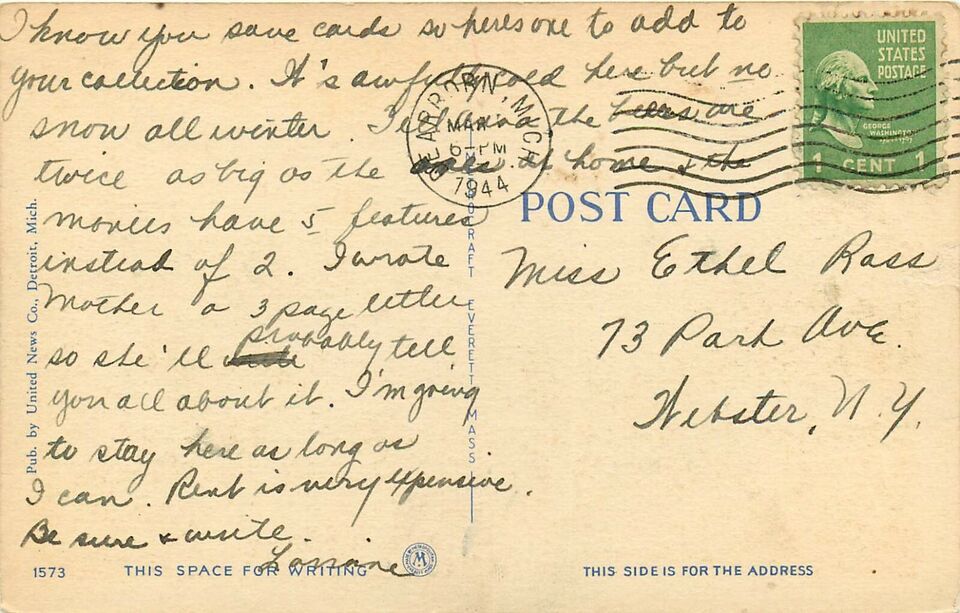 I know you save cards so heres one to add to
your collection. It's awfully cold here but no
snow all winter the are
twice as big as the at home & the
movies have 5 features
instead of 2. I wrote
Mother a 3 page letter
so she'll probably tell
you all about it. I'm going
to stay here as long as
I can. Rent is very expensive.
Be sure & write.
Lorraine
DEARBORN, MICH.
MAR
6-PM
1944
UNITED
STATES
POSTAGE
GEORGE
WASHINGTON
1 CENT 1
POST CARD
Miss Ethel Rass
73 Park Ave.
Webster, N.Y.
Pub. by United News Co., Detroit, Mich.
EVERETT MASS
1573
THIS SPACE FOR WRITING
M
THIS SIDE IS FOR THE ADDRESS